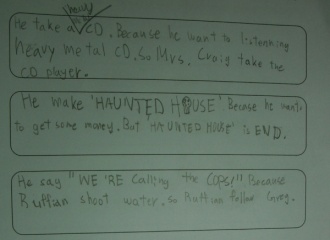 heavy
metal
He take a CD. Because he want to listenning
heavy metal CD. So Mrs. Craig take the
CD player.
He make "HAUNTED HOUSE" Becase he want
to get some money. But HAUNTED HOUSE" is END.
He say "WE'RE Calling the COPS!" Because
Ruffian shoot water. So Ruffian follow Greg.